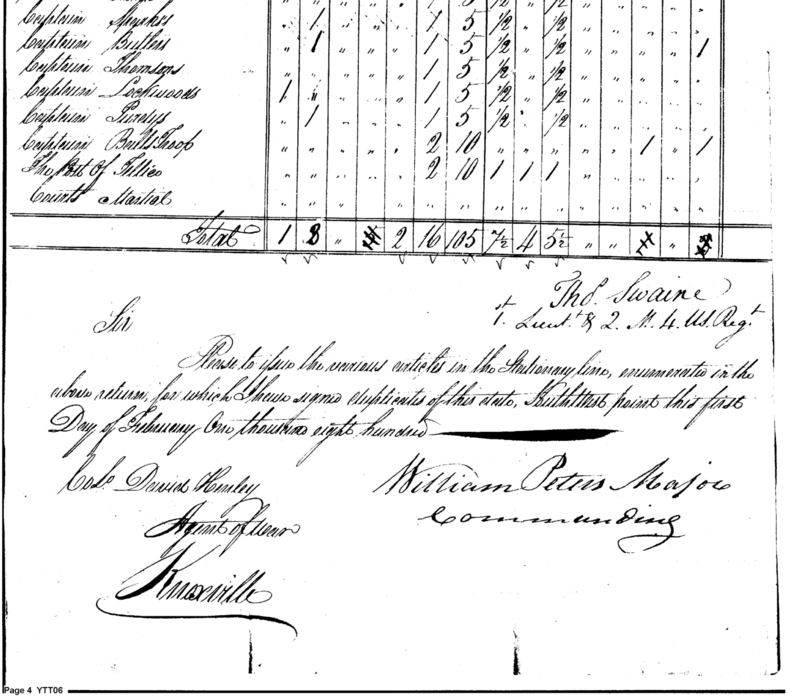 Captain Sparks " 1 " " " 1 5 1/2 " 1/2 " " " " "
Captain Butlers " 1 " " " 1 5 1/2 " 1/2 " " " " 1
Captain Thomsons " " " " " 1 5 1/2 " 1/2 " " " " "
Captain Lockwoods 1 " " " " 1 5 1/2 " 1/2 " " " " "
Captain Purdys " 1 " " " 1 5 1/2 " 1/2 " " " " "
Captain Balls Troop " " " " " 2 10 " " " " " 1 " 1
The Post Of Tellico " " " " " 2 10 1 1 1 " " " " "
Courts Martial " " " " " " " " " " " " " " "
Total 1 8 " 2 16 105 7 1/2 4 5 1/2 " " "
Thos. Swaine
1st. Lieut. & Q. M. 4. US. Regt.
Sir
Please to issue the various articles in the Stationary line, enumerated in the
above return, for which I have signed duplicates of this date, point this first
Day of February One thousand eight hundred
Colo. David Henley
William Peters Major
Agent of War
Commanding
Knoxville
Page 4 YTT06